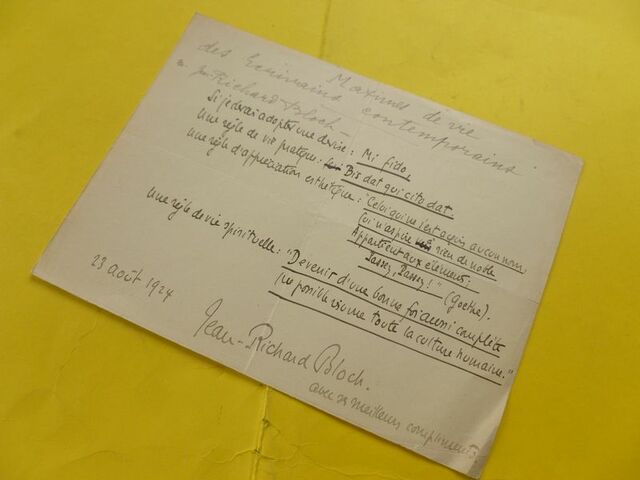 Maximes de vie
des Ecrivains contemporains
Richard-Bloch
Si je devais adopter une devise : Mi fido.
Une règle de vie pratique : Bis dat qui cito dat
Une règle d'appréciation esthétique : "Celui qui ne s'est acquis aucun nom,
Qui n'aspire à rien de noble
Appartient aux éléments.
Passez, Passez !" (Goethe).
Une règle de vie spirituelle : "Devenir d'une bonne foi aussi complète
que possible vis-à-vis toute la culture humaine."
23 août 1924
Jean-Richard Bloch.
avec ses meilleurs compliments